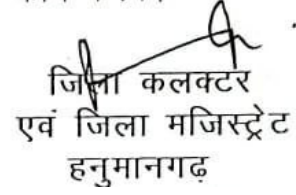 जिला कलक्टर
एवं जिला मजिस्ट्रेट
हनुमानगढ़